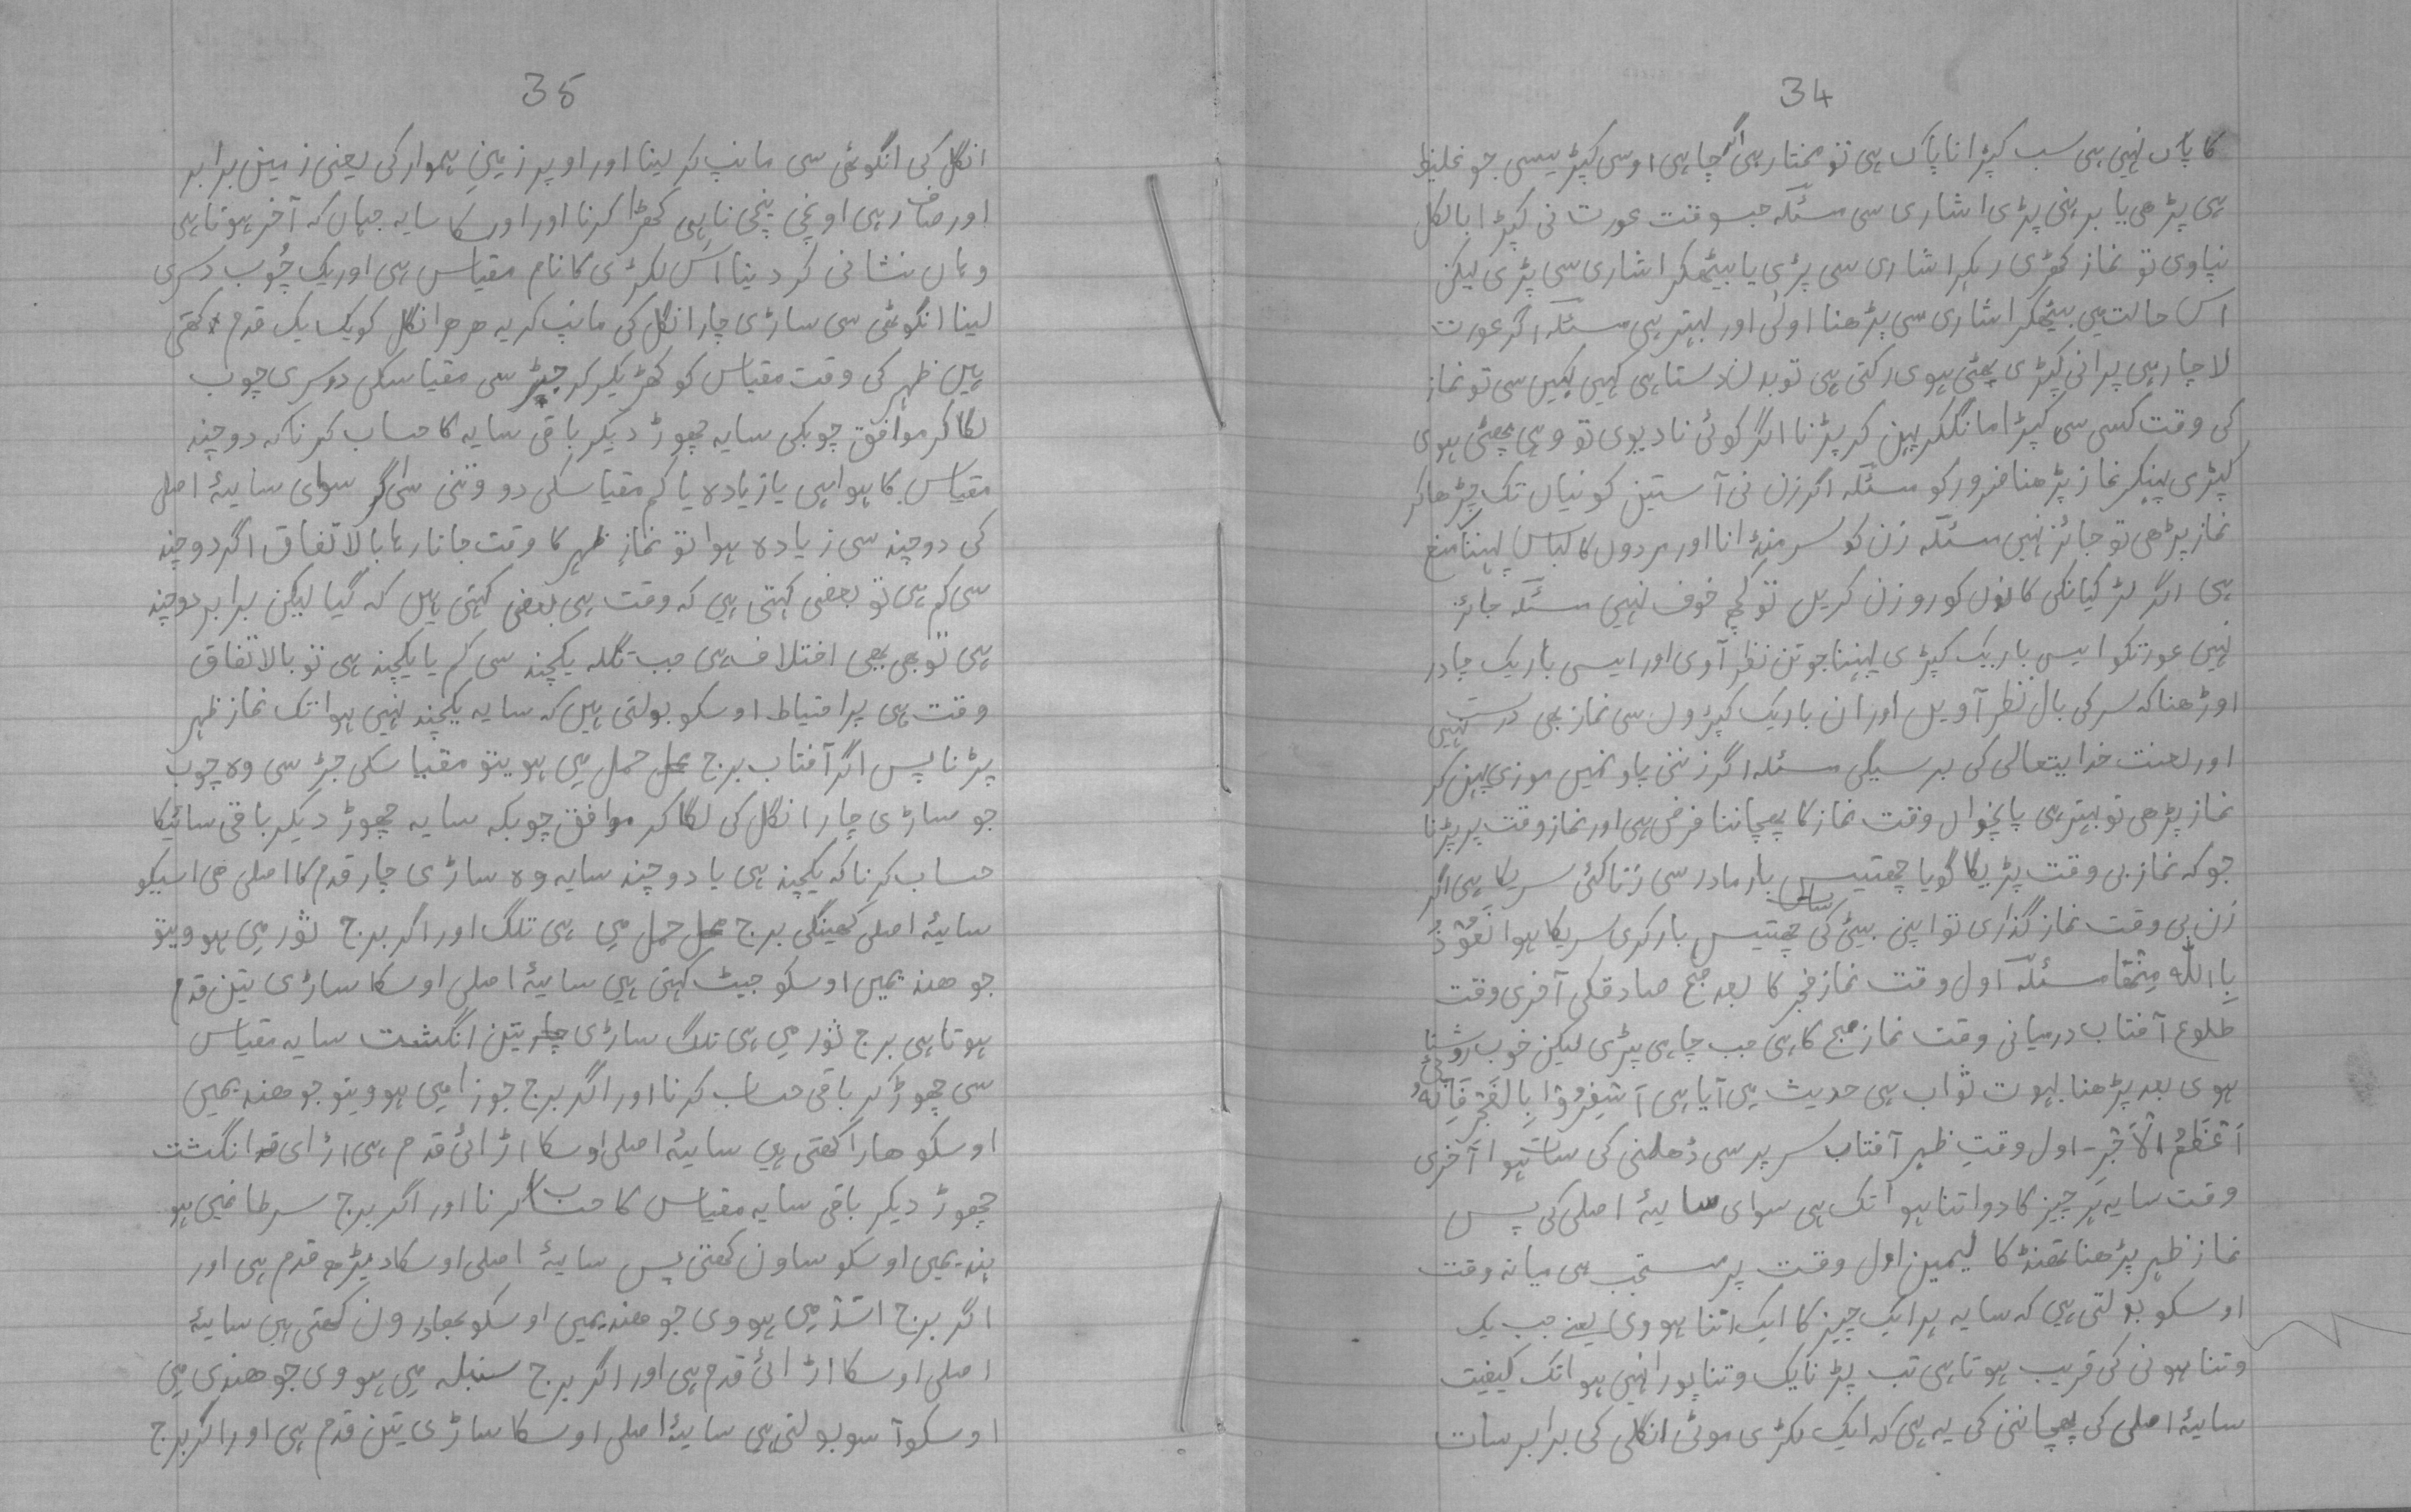 34
کا پاں نہیں ہی سب کپڑا ناپاک ہی تو مختار ہی اگر چاہی اوسی کپڑیسی جو غلیظ
ہی پڑھی یا برہنی پڑی اشاری سی مسئلہ جسوقت عورت نی کپڑا بالکل
نپاوی تو نماز کھڑی رہکر اشاری سی پڑی یا بیٹھکر اشاری سی پڑی لیکن
اس حالت میں بیٹھکر اشاری سی پڑھنا اولٰی اور بہتر ہی مسئلہ اگر عورت
لاچار ہی پرانی کپڑی پھٹی ہوی رکتی ہی تو بدن دستا ہی کہیں کہیں سی تو نماز
کی وقت کسی سی کپڑا مانگکر پہن کر پڑنا اگر کوئی نا دیوی تو وہی پھٹی ہوی
کپڑی پہنکر نماز پڑھنا ضرور کو مسئلہ اگر زن نی آستین کونیاں تک چڑھاکر
نماز پڑھی تو جائز نہیں مسئلہ زن کو سر منڈانا اور مردوں کا لباس پہننا منع
ہی اگر لڑکیانکی کانوں کو روزن کریں تو کچھ خوف نہیں مسئلہ جائز
نہیں عورتکو ایسی باریک کپڑی پہننا جو تن نظر آوی اور ایسی باریک چادر
اوڑھنا کہ سر کی بال نظر آویں اور ان باریک کپڑوں سی نماز بھی درست نہیں
اور لعنت خدایتعالی کی برسیگی مسئلہ اگر زننی پاونمیں موزی پہن کر
نماز پڑھی تو بہتر ہی پانچواں وقت نماز کا پہچاننا فرض ہی اور نماز وقت پر پڑنا
جو کہ نماز بی وقت پڑیگا گویا چھتیس بار مادر سی زنا کئی سریکا ہی اگر
زن بی وقت نماز گذاری تو اپنی بیٹی کی ساتھ چھتیس بار کری سریکا ہوا نَعُوْذُ
بِاللّٰہِ مِنْھَا مسئلہ اول وقت نماز فجر کا بعد صبح صادقکی آخری وقت
طلوع آفتاب درمیانی وقت نماز صبح کا ہی جب چاہی پڑی لیکن خوب روشنائی
ہوی بعد پڑھنا بہوت ثواب ہی حدیث میں آیا ہی اَسْفِرُوْا بِالْفَجْرِ فَاِنَّہٗ
اَعْظَمُ الْاَجْر۔ اول وقتِ ظہر آفتاب سر پر سی ڈھلنی کی سات ہوا آخری
وقت سایہ ہر چیز کا دو اتنا ہو اتک ہی سوای سایۂ اصلی کی پس
نماز ظہر پڑھنا تھنڈکا لیمین اول وقت پر مستحب ہی میانہ وقت
اوسکو بولتی ہیں کہ سایہ ہر ایک چیز کا ایک اتنا ہووی یعنے جب یک
وتنا ہونی کی قریب ہوتا ہی تب پڑنا یک وتنا پورا نہیں ہو اتک کیفیت
سایۂ اصلی کی پہچاننی کی یہ ہی کہ ایک لکڑی موٹی انگلی کی برابر سات
35
انگل کی انگوٹھی سی مانپ کر لینا اور اوپر زمینِ ہموار کی یعنی زمین برابر
اور صاف رہی اونچی نیچی نا ہی کھڑا کرنا اور اوسکا سایہ جہاں کہ آخر ہوتا ہی
وہاں نشانی کر دینا اس لکڑی کا نام مقیاس ہی اور یک چُوب دسری
لینا انگوٹھی سی ساڑی چار انگل کی مانپ کر یہ ھر ھر انگل کو یک یک قدم کھتی
ہیں ظہر کی وقت مقیاس کو کھڑیکر کر جڑ سی مقیاسکی دوسری چوب
لگا کر موافق چوبکی سایہ چھوڑ دیکر باقی سایہ کا حساب کرنا کہ دوچند
مقیاس کا ہوا ہی یا زیادہ یا کم مقیاسکی دو وتنی سی اگر سوای سایۂ اصلی
کی دوچند سی زیادہ ہوا تو نمازِ ظہر کا وقت جاتا رہا بالاتفاق اگر دوچند
سی کم ہی تو بعضی کہتی ہیں کہ وقت ہی بعضی کہتی ہیں کہ گیا لیکن برابر دوچند
ہی تو بھی بھی اختلاف ہی جب تگلہ یکچند سی کم یا یکچند ہی تو بالاتفاق
وقت ہی پر احتیاط اوسکو بولتی ہیں کہ سایہ یکچند نہیں ہو اتک نماز ظہر
پڑنا پس اگر آفتاب برج حمل میں ہویتو مقیاسکی جڑ سی وہ چوب
جو ساڑی چار انگل کی لگا کر موافق چوبکہ سایہ چھوڑ دیکر باقی سائیکا
حساب کرنا کہ یکچند ہی یا دوچند سایہ وہ ساڑی چار قدم کا اصلی ھی اسیکو
سایۂ اصلی کھینگی برج حمل میں ہی تلگ اور اگر برج ثور میں ہوویتو
جو ھندیمیں اوسکو جیٹ کہتی ہیں سایۂ اصلی اوسکا ساڑی تین قدم
ہوتا ہی برج ثور میں ہی تلگ ساڑی تین انگشت سایہ مقیاس
سی چھوڑ کر باقی حساب کرنا اور اگر برج جوزا میں ہوویتو جو ھندیمیں
اوسکو ھارا کھتی ہیں سایۂ اصلی اوسکا اڑائی قدم ہی اڑای انگشت
چھوڑ دیکر باقی سایہ مقیاس کا حساب کرنا اور اگر برج سرطانمیں ہو
ہندیمیں اوسکو ساون کھتی پس سایۂ اصلی اوسکا دیڑھ قدم ہی اور
اگر برج اسد میں ہووی جو ھندیمیں اوسکو بھادرون کھتی ہیں سایۂ
اصلی اوسکا اڑائی قدم ہی اور اگر برج سنبلہ میں ہووی جو ھندی میں
اوسکو آسو بولتی ہیں سایۂ اصلی اوسکا ساڑی تین قدم ہی اور اگر برج